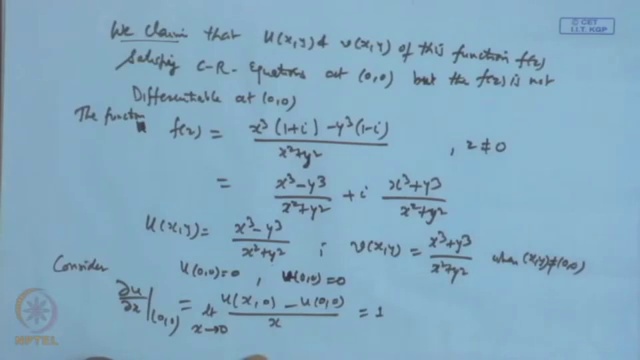 © CET
I.I.T. KGP
We claim that u(x,y) & v(x,y) of this function f(z)
Satisfying C-R. Equations at (0,0) but the f(z) is not
Differentiable at (0,0)
The function f(z) = x³(1+i) - y³(1-i) / x²+y² , z ≠ 0
= x³-y³ / x²+y² + i x³+y³ / x²+y²
u(x,y) = x³-y³ / x²+y² ; v(x,y) = x³+y³ / x²+y² when (x,y)≠(0,0)
Consider u(0,0)=0 , u(0,0)=0
∂u/∂x |(0,0) = lt x→0 u(x,0) - u(0,0) / x = 1
NPTEL